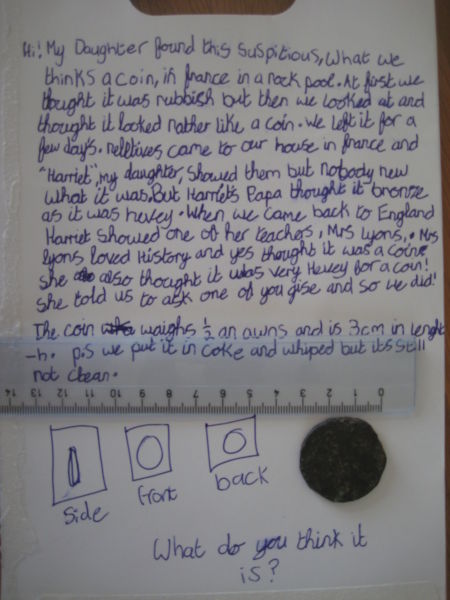 Hi! My Daughter found this suspitious, What we
thinks a coin, in france in a rock pool. At first we
thought it was rubbish but then we looked at and
thought it looked rather like a coin. We left it for a
few days. relitives came to our house in france and
"Harriet", my daughter, showed them but nobody new
what it was. But Harriets Papa thought it bronze
as it was hevey. When we came back to England
Harriet showed one of her teachers, Mrs Lyons,. Mrs
Lyons loved History and yes thought it was a coin.
She also thought it was very Hevey for a coin!
She told us to ask one of you gise and so we did!
The coin waighs ½ an awns and is 3cm in lenght
-h. p.s we put it in coke and whiped but its still
not clean.
14 13 12 11 10 9 8 7 6 5 4 3 2 1 0
Side
front
back
What do you think it
is?